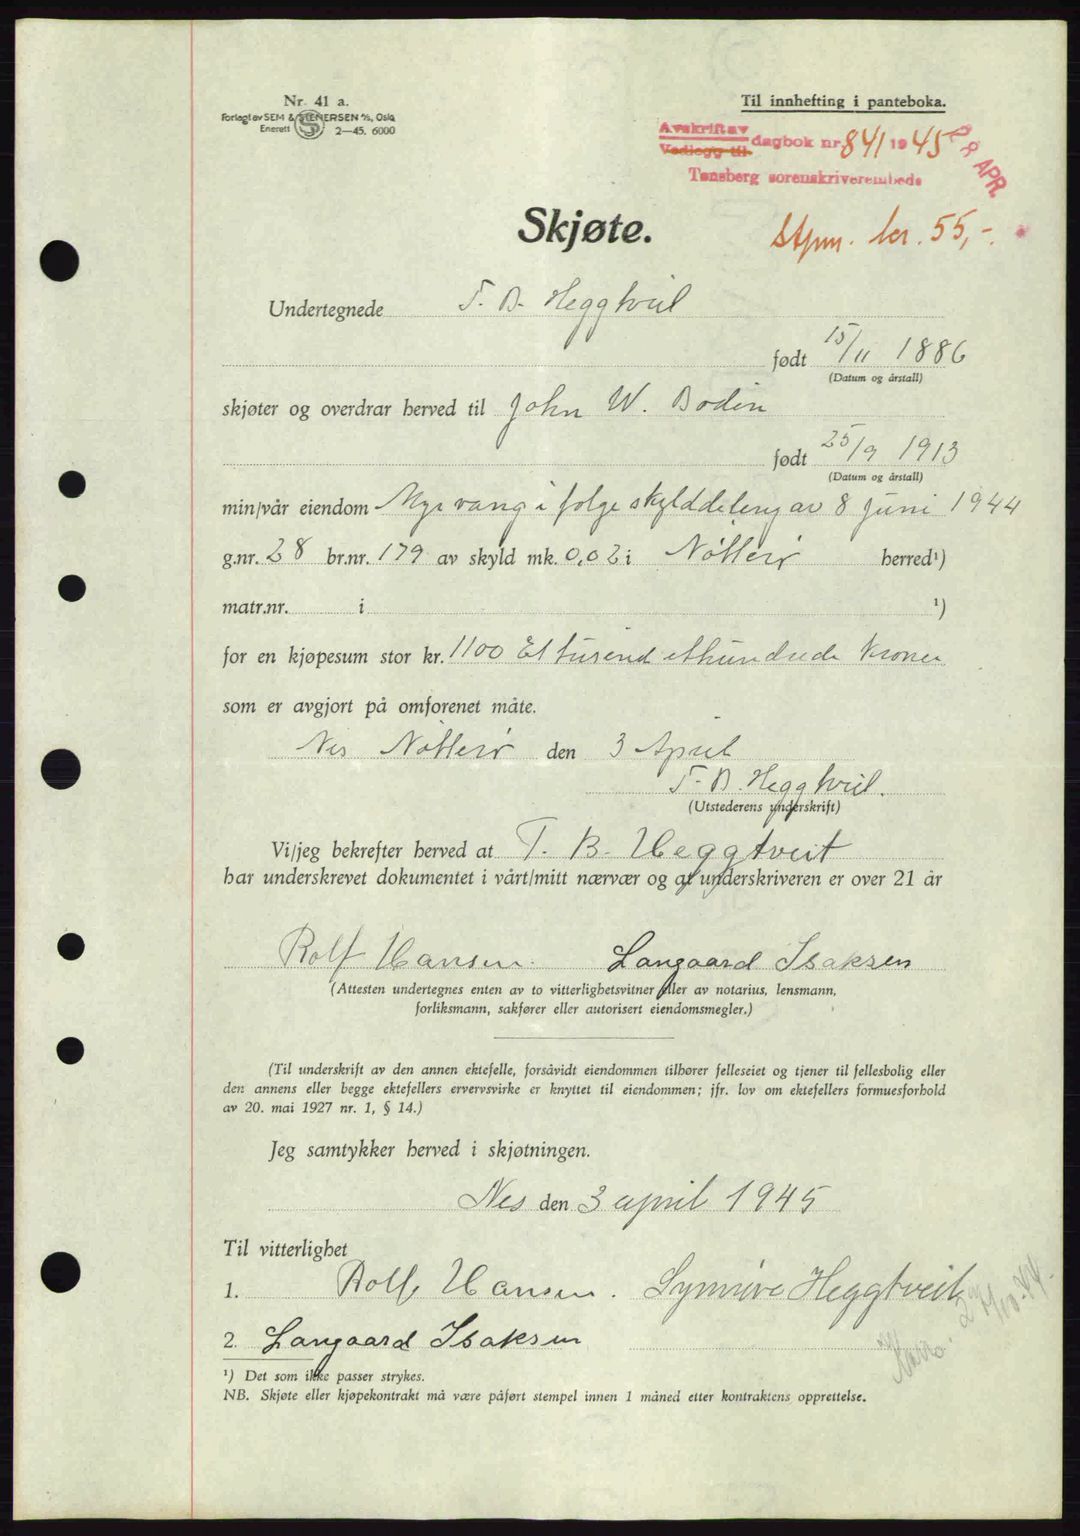 Nr. 41 a.
Forlagt av SEM & STENERSEN A/S, Oslo
Enerett 2—45. 6000
Til innhefting i panteboka.
Avskrift av
Vedlegg til dagbok nr. 841 1945
28 APR.
Tønsberg sorenskriverembede
Skjøte.
Stpm. kr. 55,-.
Undertegnede T. B. Heggtveit
født 15/11 1886
(Datum og årstall)
skjøter og overdrar herved til John W. Bodin
født 25/9 1913
(Datum og årstall)
min/vår eiendom Myrvang i følge skylddeling av 8 Juni 1944
g.nr. 28 br.nr. 179 av skyld mk. 0,02 i Nøtterø herred¹)
matr.nr. i ¹)
for en kjøpesum stor kr. 1100 Et tusend ethundrede Kroner
som er avgjort på omforenet måte.
Nes Nøtterø den 3 April
T. B. Heggtveit.
(Utstederens underskrift)
Vi/jeg bekrefter herved at T. B. Heggtveit
har underskrevet dokumentet i vårt/mitt nærvær og at underskriveren er over 21 år
Rolf Hansen. Langaard Isaksen
(Attesten undertegnes enten av to vitterlighetsvitner eller av notarius, lensmann,
forliksmann, sakfører eller autorisert eiendomsmegler.)
(Til underskrift av den annen ektefelle, forsåvidt eiendommen tilhører felleseiet og tjener til fellesbolig eller
den annens eller begge ektefellers ervervsvirke er knyttet til eiendommen; jfr. lov om ektefellers formuesforhold
av 20. mai 1927 nr. 1, § 14.)
Jeg samtykker herved i skjøtningen.
Nes den 3 april 1945
Til vitterlighet
1. Rolf Hansen. Synnøve Heggtveit
2. Langaard Isaksen
¹) Det som ikke passer strykes.
NB. Skjøte eller kjøpekontrakt må være påført stempel innen 1 måned etter kontraktens opprettelse.